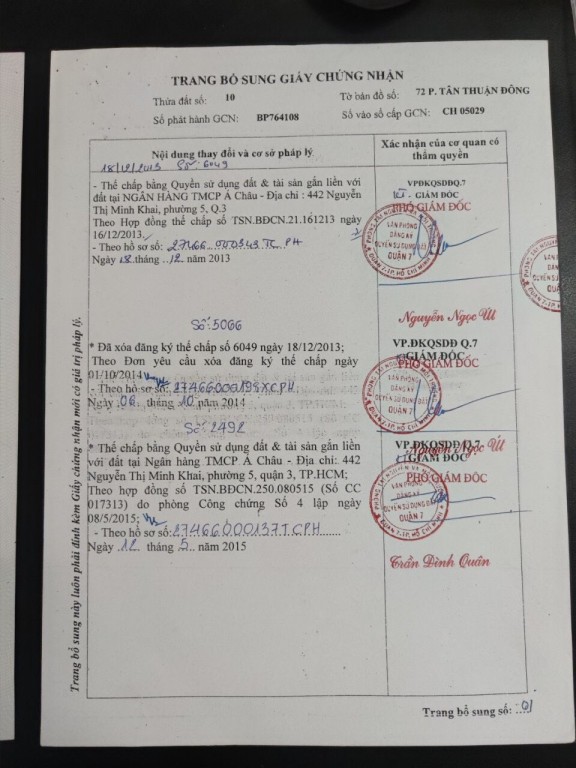 TRANG BỔ SUNG GIẤY CHỨNG NHẬN
Thửa đất số: 10 Tờ bản đồ số: 72 P. TÂN THUẬN ĐÔNG
Số phát hành GCN: BP764108 Số vào sổ cấp GCN: CH 05029
Nội dung thay đổi và cơ sở pháp lý
Xác nhận của cơ quan có
thẩm quyền
18/12/2013 Số: 6049
- Thế chấp bằng Quyền sử dụng đất & tài sản gắn liền với
đất tại NGÂN HÀNG TMCP Á Châu - Địa chỉ : 442 Nguyễn
Thị Minh Khai, phường 5, Q.3
Theo Hợp đồng thế chấp số TSN.BĐCN.21.161213 ngày
16/12/2013.
- Theo hồ sơ số: 27466.000343.TC.PH
Ngày 18 tháng 12 năm 2013
VPĐKQSDĐQ.7
GIÁM ĐỐC
PHÓ GIÁM ĐỐC
VĂN PHÒNG
ĐĂNG KÝ
QUYỀN SỬ DỤNG ĐẤT
QUẬN 7
Nguyễn Ngọc Út
Số: 5066
* Đã xóa đăng ký thế chấp số 6049 ngày 18/12/2013;
Theo Đơn yêu cầu xóa đăng ký thế chấp ngày
01/10/2014
- Theo hồ sơ số: 27466000198XCPH
Ngày 08 tháng 10 năm 2014
VP.ĐKQSDĐ Q.7
GIÁM ĐỐC
PHÓ GIÁM ĐỐC
VĂN PHÒNG
ĐĂNG KÝ
QUYỀN SỬ DỤNG ĐẤT
QUẬN 7
Nguyễn Ngọc Út
Số 2492
* Thế chấp bằng Quyền sử dụng đất & tài sản gắn liền
với đất tại Ngân hàng TMCP Á Châu - Địa chỉ: 442
Nguyễn Thị Minh Khai, phường 5, quận 3, TP.HCM;
Theo hợp đồng số TSN.BĐCN.250.080515 (Số CC
017313) do phòng Công chứng Số 4 lập ngày
08/5/2015;
- Theo hồ sơ số: 27466000137TCPH
Ngày 12 tháng 5 năm 2015
VP.ĐKQSDĐ Q.7
GIÁM ĐỐC
PHÓ GIÁM ĐỐC
VĂN PHÒNG
ĐĂNG KÝ
QUYỀN SỬ DỤNG ĐẤT
QUẬN 7
Trần Đình Quân
Trang bổ sung này luôn phải đính kèm Giấy chứng nhận mới có giá trị pháp lý.
Trang bổ sung số: 01